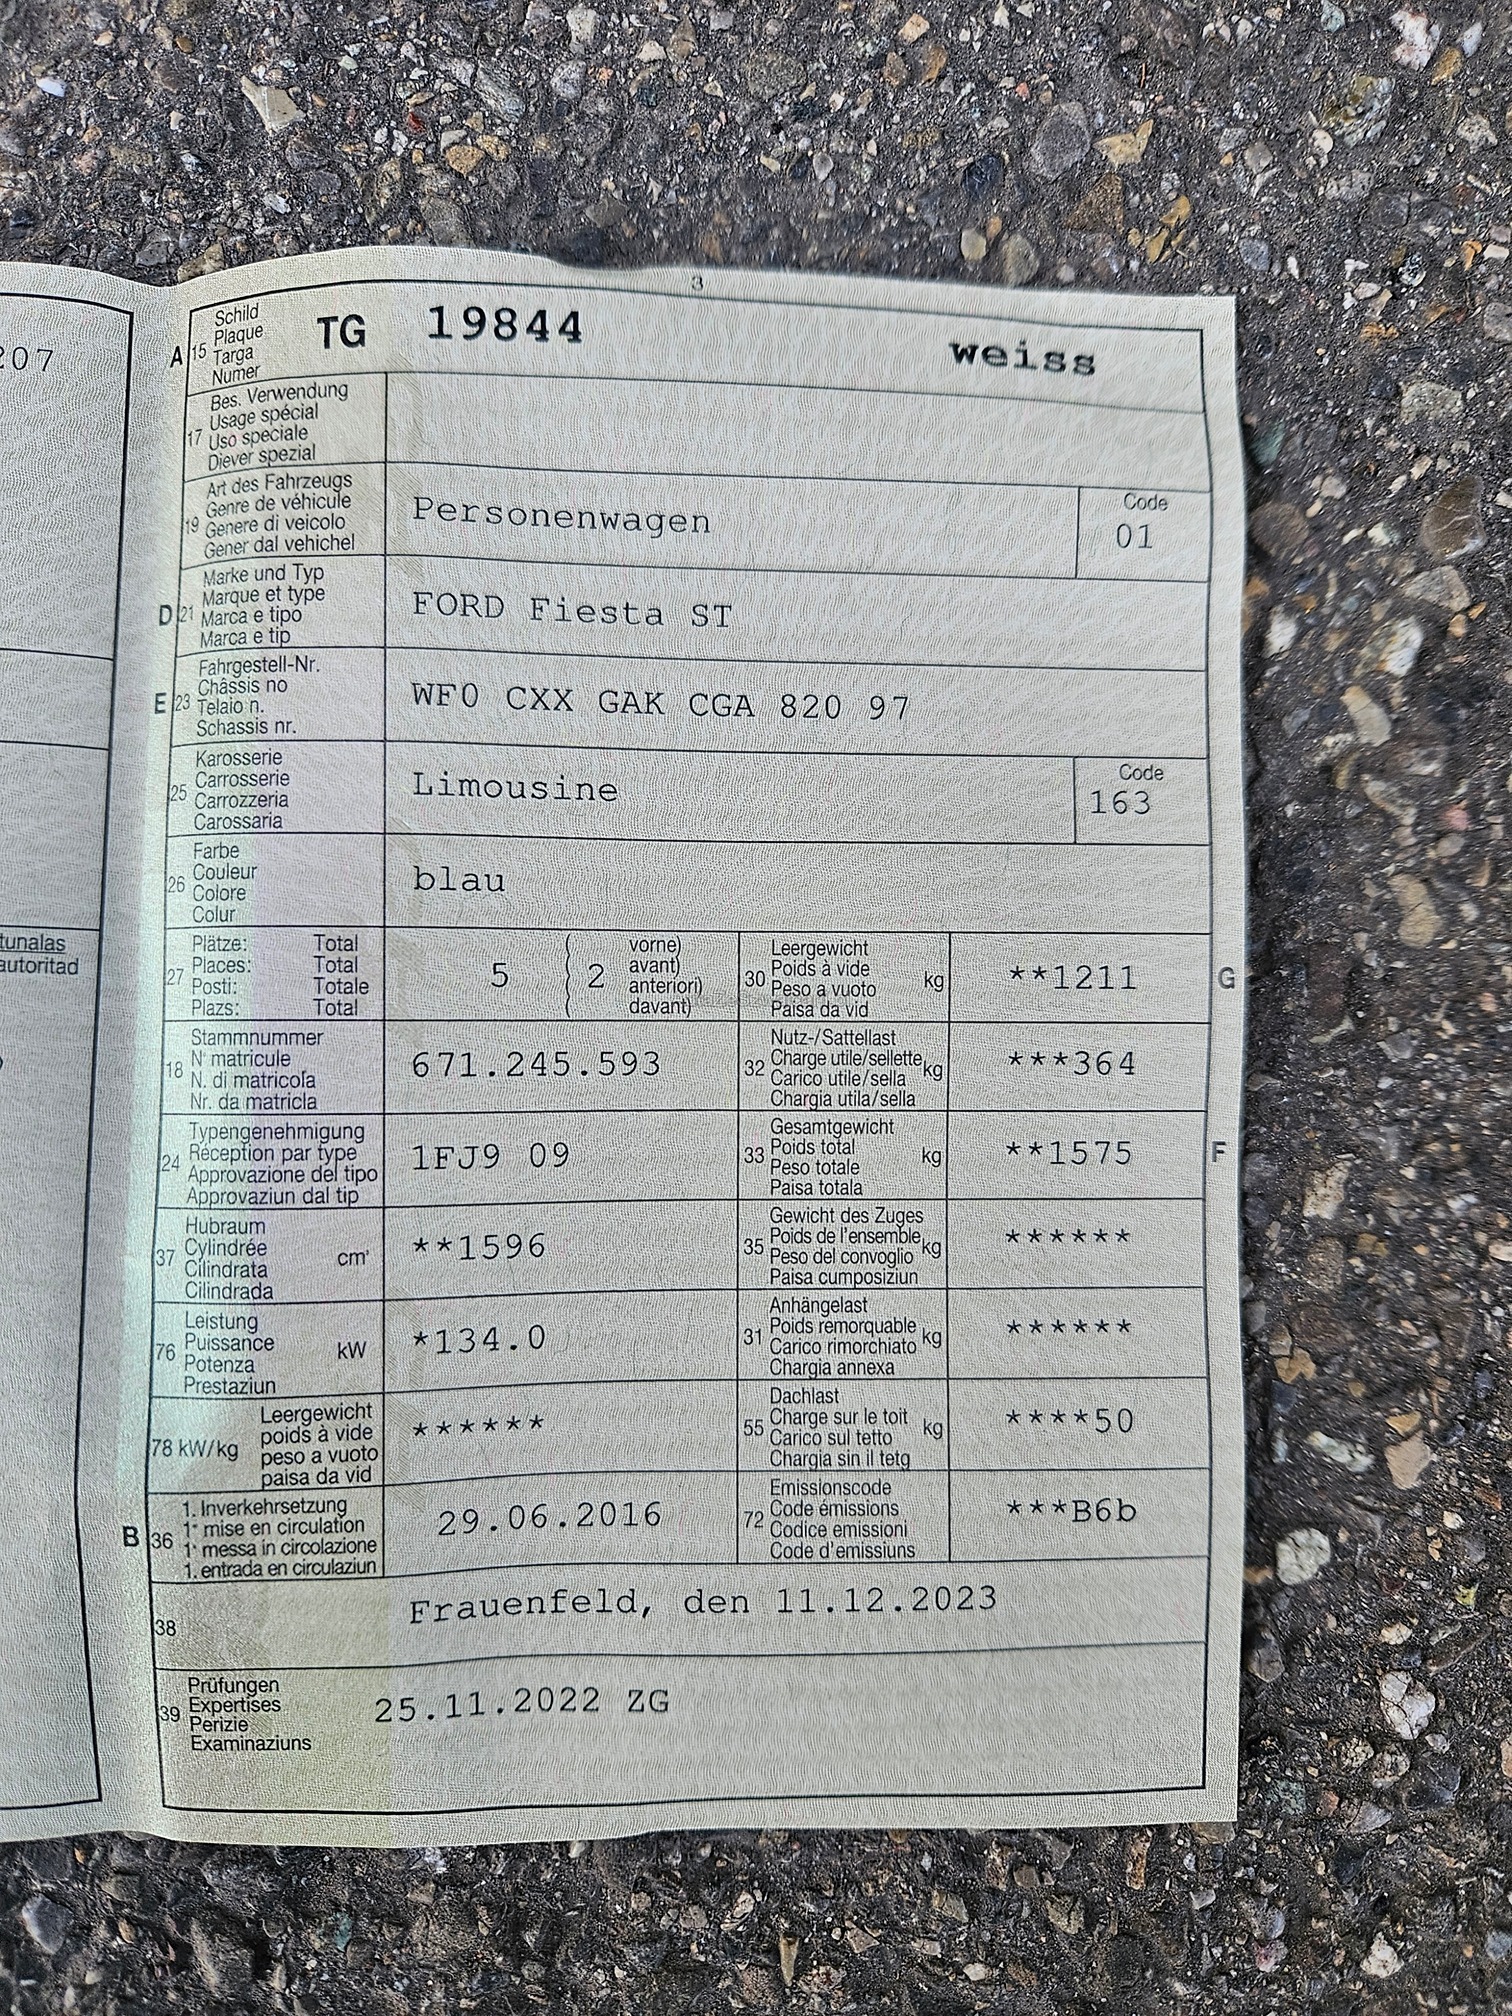 3
207
A 15 Schild
Plaque
Targa
Numer
TG 19844 weiss
17 Bes. Verwendung
Usage spécial
Uso speciale
Diever spezial
19 Art des Fahrzeugs
Genre de véhicule
Genere di veicolo
Gener dal vehichel
Personenwagen
Code
01
D 21 Marke und Typ
Marque et type
Marca e tipo
Marca e tip
FORD Fiesta ST
E 23 Fahrgestell-Nr.
Châssis no
Telaio n.
Schassis nr.
WF0 CXX GAK CGA 820 97
25 Karosserie
Carrosserie
Carrozzeria
Carossaria
Limousine
Code
163
26 Farbe
Couleur
Colore
Colur
blau
tunalas
autoritad
27 Plätze: Total
Places: Total
Posti: Totale
Plazs: Total
5 ( 2 vorne)
( avant)
( anteriori)
( davant)
30 Leergewicht
Poids à vide
Peso a vuoto
Paisa da vid
kg
**1211
G
18 Stammnummer
N° matricule
N. di matricola
Nr. da matricla
671.245.593
32 Nutz-/Sattellast
Charge utile/sellette
Carico utile/sella
Chargia utila/sella
kg
***364
24 Typengenehmigung
Réception par type
Approvazione del tipo
Approvaziun dal tip
1FJ9 09
33 Gesamtgewicht
Poids total
Peso totale
Paisa totala
kg
**1575
F
37 Hubraum
Cylindrée
Cilindrata
Cilindrada
cm³
**1596
35 Gewicht des Zuges
Poids de l'ensemble
Peso del convoglio
Paisa cumposiziun
kg
******
76 Leistung
Puissance
Potenza
Prestaziun
kW
*134.0
31 Anhängelast
Poids remorquable
Carico rimorchiato
Chargia annexa
kg
******
78 kW/kg
Leergewicht
poids à vide
peso a vuoto
paisa da vid
******
55 Dachlast
Charge sur le toit
Carico sul tetto
Chargia sin il tetg
kg
****50
B 36 1. Inverkehrsetzung
1° mise en circulation
1° messa in circolazione
1. entrada en circulaziun
29.06.2016
72 Emissionscode
Code émissions
Codice emissioni
Code d'emissiuns
***B6b
38 Frauenfeld, den 11.12.2023
39 Prüfungen
Expertises
Perizie
Examinaziuns
25.11.2022 ZG